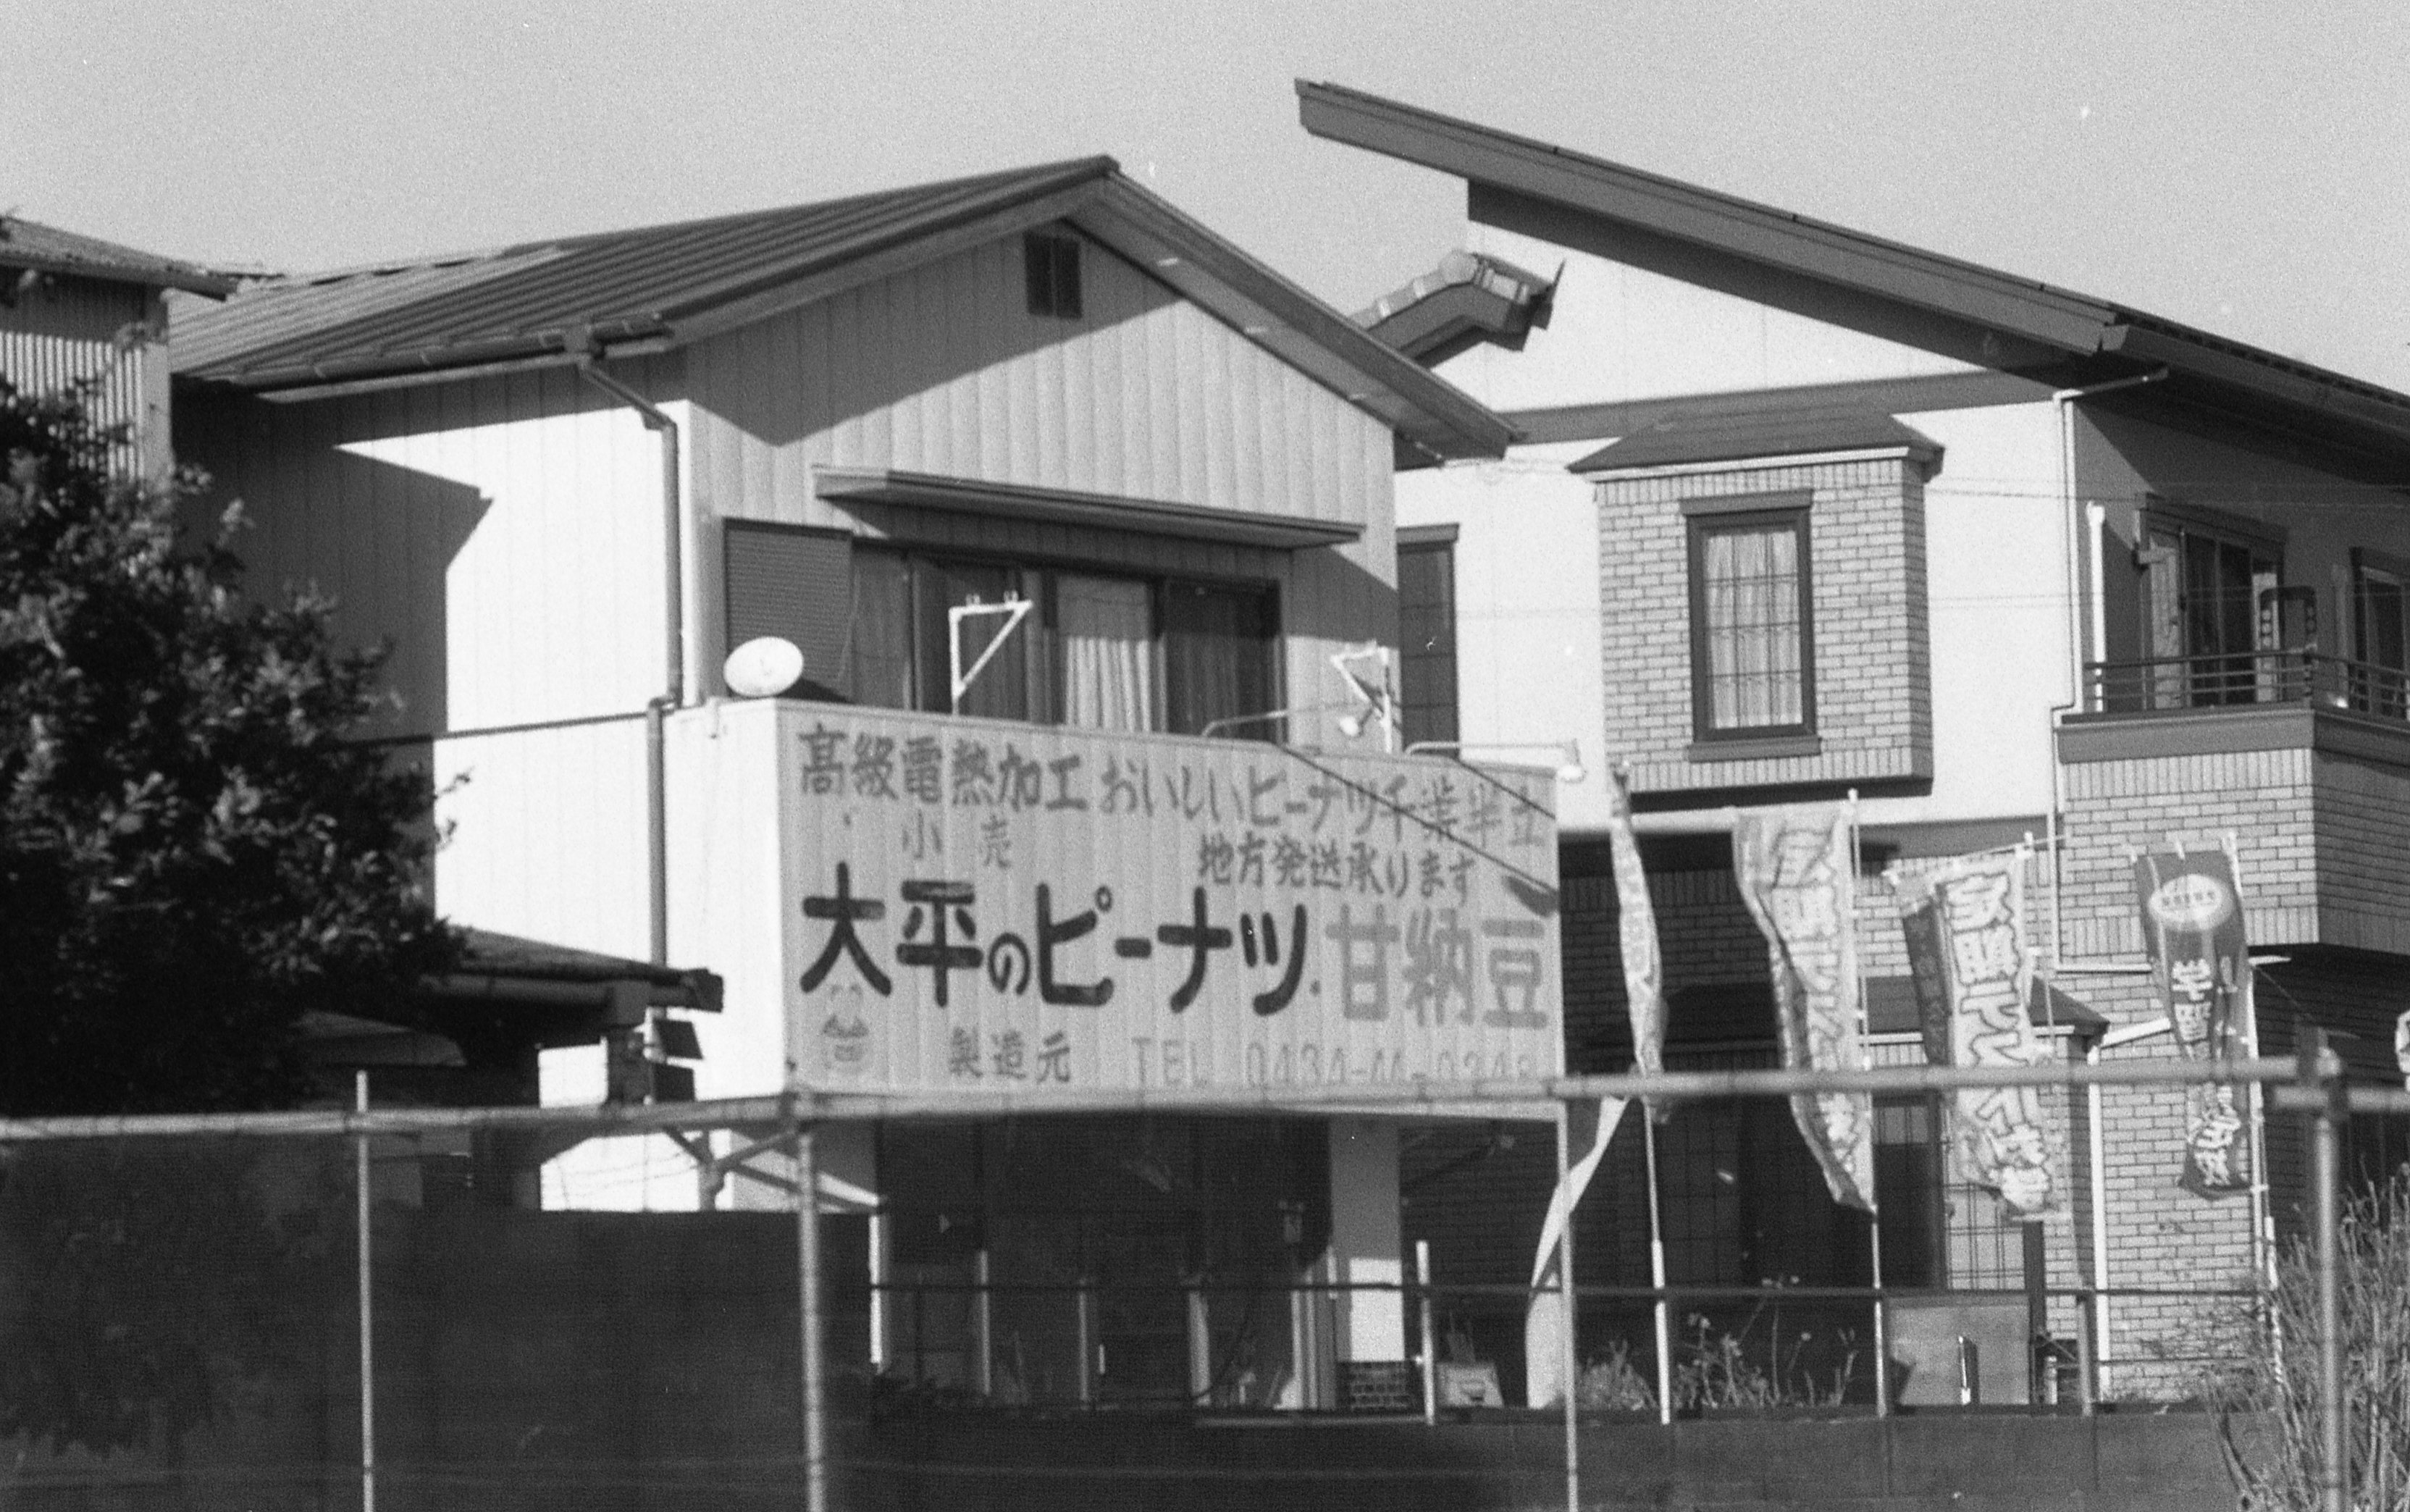 高級電熱加工 おいしいピーナツ千葉半立
小売
地方発送承ります
大平のピーナツ・甘納豆
製造元 TEL 0434-44-0348